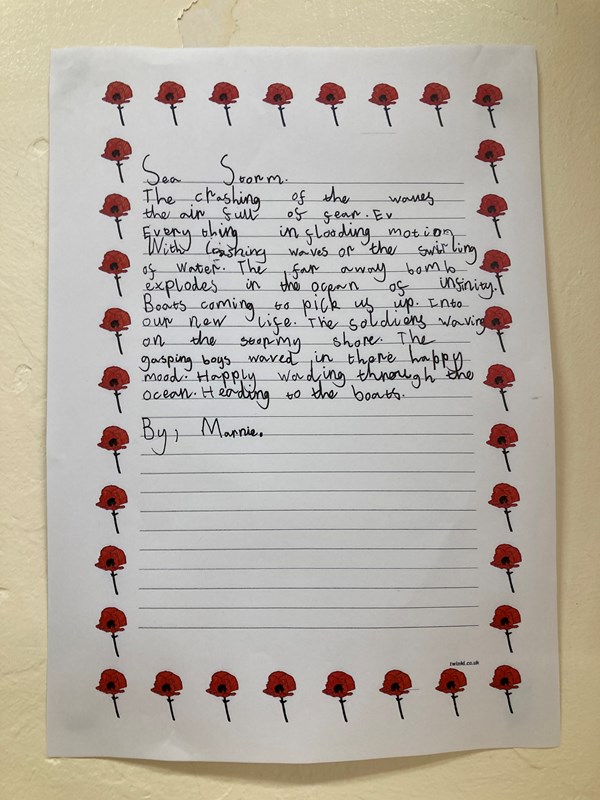 Sea Storm.
The crashing of the waves
the air full of fear. Ev
Every thing in flooding motion
With lashing waves or the swirling
of water. The far away bomb
explodes in the ocean of infinity.
Boats coming to pick us up. Into
our new life. The soldiers waving
on the stormy shore. The
gasping boys waved in there happy
mood. Happly wading through the
ocean. Heading to the boats.
By, Marnie.
twinkl.co.uk